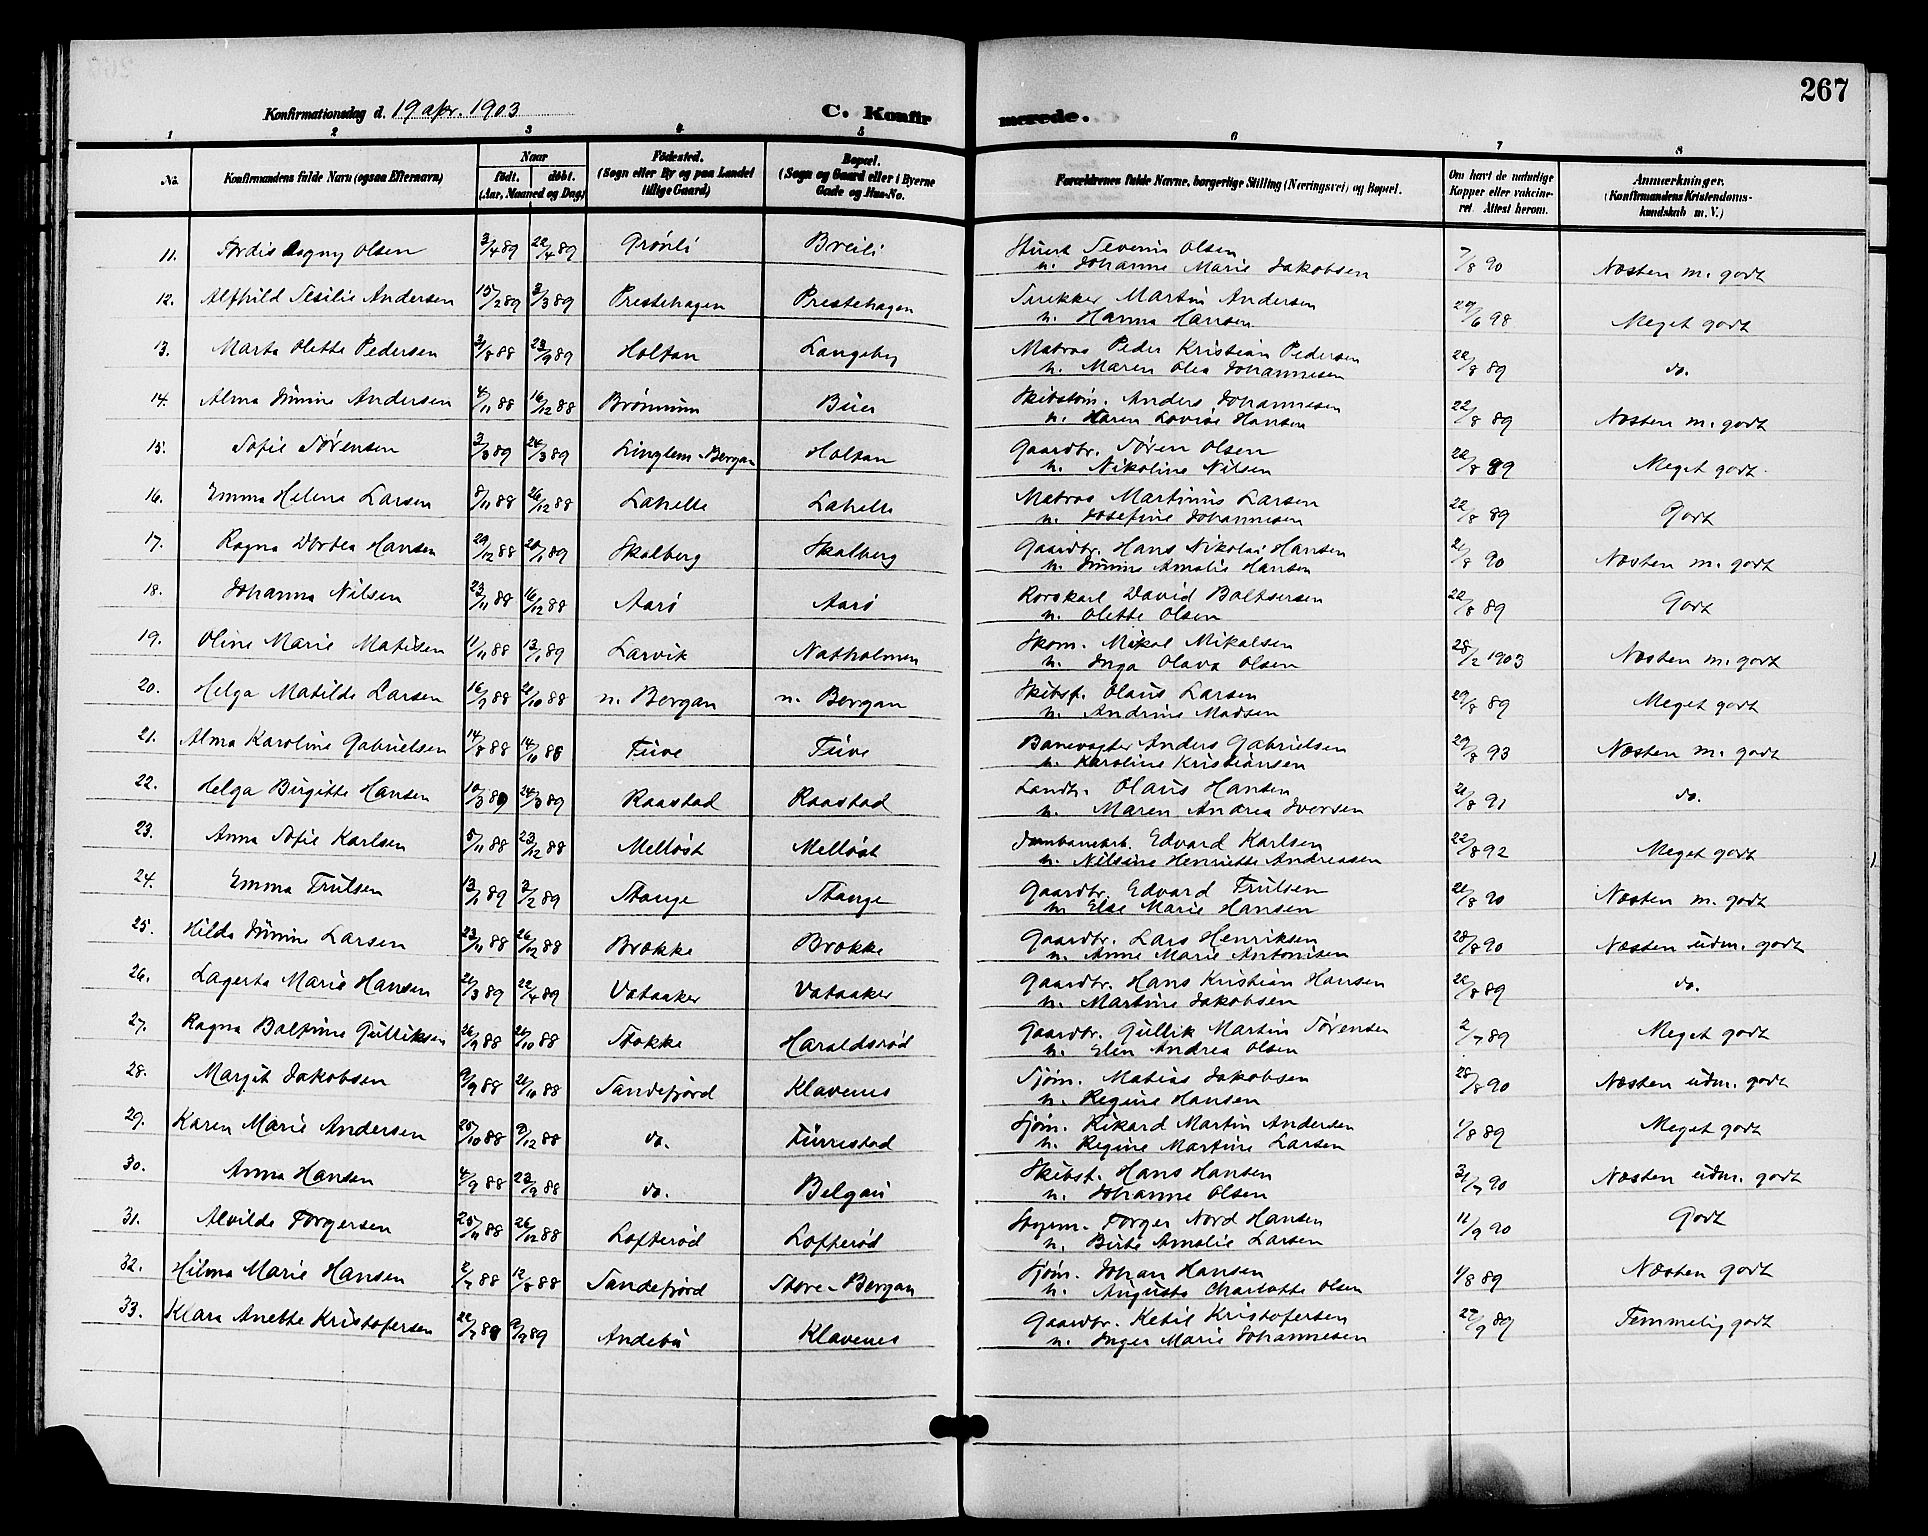 267
Konfirmationsdag d. 19 apr. 1903 C. Konfirmerede.
1 2 3 4 5 6 7 8
No. Konfirmandens fulde Navn (ogsaa Efternavn) Naar født. døbt. (Aar, Maaned og Dag) Fødested. (Sogn eller By og paa Landet tillige Gaard) Bopæl. (Sogn og Gaard eller i Byerne Gade og Hus-No. Forældrenes fulde Navne, borgerlige Stilling (Næringsvei) og Bopæl. Om havt de naturlige Kopper eller vakcineret. Attest herom. Anmærkninger. (Konfirmandens Kristendomskundskab m. V.)
11. Tordis Asgny Olsen 3/4 89 22/4 89 Grönli Breili Stuert Severin Olsen 7/8 90 Næsten m. godt
u. Johanne Marie Jakobsen
12. Alfhild Sesilie Andersen 15/2 89 3/3 89 Prestehagen Prestehagen Snekker Martin Andersen 29/6 98 Meget godt
u. Hanna Hansen
13. Marta Olette Pedersen 31/8 88 23/9 89 Holtan Langeby Matros Peder Kristian Pedersen 22/8 89 do.
u. Maren Olea Johannesen
14. Alma Jimine Andersen 4/11 88 16/12 88 Brønnum Buer Skibstøm. Anders Johannesen 22/8 89 Næsten m. godt
u. Karen Lovise Hansen
15. Sofie Sørensen 3/3 89 24/3 89 Linglem-Bergan Holtan Gaardbr. Søren Olsen 22/8 89 Meget godt.
u. Nikoline Nilsen
16. Emma Helene Larsen 8/11 88 26/12 88 Lahelle Lahelle Matros Martinus Larsen 22/8 89 Godt
u. Josefine Johannesen
17. Ragna Dortea Hansen 29/12 88 20/1 89 Skalberg Skalberg Gaardbr. Hans Nikolai Hansen 21/8 90 Næsten m. godt
u. Jimine Amalie Hansen
18. Johanna Nilsen 23/11 88 16/12 88 Aarø Aarø Rorskarl David Baltsersen 22/8 89 Godt
u. Olette Olsen
19. Oline Marie Matisen 11/11 88 13/1 89 Larvik Natholmen Skom. Mikal Mikalsen 28/2 1903 Næsten m. godt
u. Inga Olava Olsen
20. Helga Matilde Larsen 16/9 88 21/10 88 n. Bergan n. Bergan Skibsf. Olaus Larsen 29/8 89 Meget godt
u. Andrine Madsen
21. Alma Karoline Gabrielsen 14/8 88 14/10 88 Tuve Tuve Banevagter Anders Gabrielsen 29/8 93 Næsten m. godt
u. Karoline Kristiansen
22. Helga Birgitte Hansen 10/3 89 24/3 89 Raastad Raastad Landh. Olaus Hansen 21/8 91 do.
u. Maren Andrea Iversen
23. Anna Sofie Karlsen 5/11 88 23/12 88 Melløst Melløst Jernbanearb. Edvard Karlsen 22/8 92 Meget godt
u. Nilsine Henriette Andreasen
24. Emma Trulsen 13/1 89 3/2 89 Stange Stange Gaardbr. Edvard Trulsen 21/8 90 Næsten m. godt
u. Else Marie Hansen
25. Hilda Jimine Larsen 23/11 88 26/12 88 Brække Brække Gaardbr. Lars Henriksen 28/8 90 Næsten udm. godt
u. Anne Marie Antonisen
26. Lagerta Marie Hansen 21/3 89 22/4 89 Vataaker Vataaker Gaardbr. Hans Kristian Hansen 22/8 89 do.
u. Martine Jakobsen
27. Ragna Balpine Gulliksen 26/9 88 21/10 88 Stokke Haraldsrød Gaardbr. Gullik Martin Sørensen 2/7 89 Meget godt
u. Elen Andrea Olsen
28. Margit Jakobsen 9/9 88 21/10 88 Sandefjord Klavenes Sjøm. Matias Jakobsen 28/8 90 Næsten udm. godt
u. Regine Hansen
29. Karen Marie Andersen 25/10 88 9/12 88 do. Furrestad Sjøm. Rikard Martin Andersen 1/8 89 Meget godt
u. Regine Martine Larsen
30. Anna Hansen 4/9 88 23/9 88 do. Belgau Skibst. Hans Hansen 31/7 90 Næsten udm. godt
u. Johanne Olsen
31. Alvilde Torgersen 25/11 88 26/12 88 Lofterød Lofterød Styrm. Torger Nord Hansen 11/9 90 Godt
u. Birte Amalie Larsen
32. Hilma Marie Hansen 2/7 88 12/8 88 Sandefjord Store-Bergan Sjøm. Johan Hansen 1/8 89 Næsten godt
u. Augusta Charlotte Olsen
33. Klara Anette Kristofersen 22/7 89 9/9 89 Andebu Klavenes Gaardbr. Ketil Kristofersen 27/9 89 Temmelig godt
u. Inger Marie Johannesen